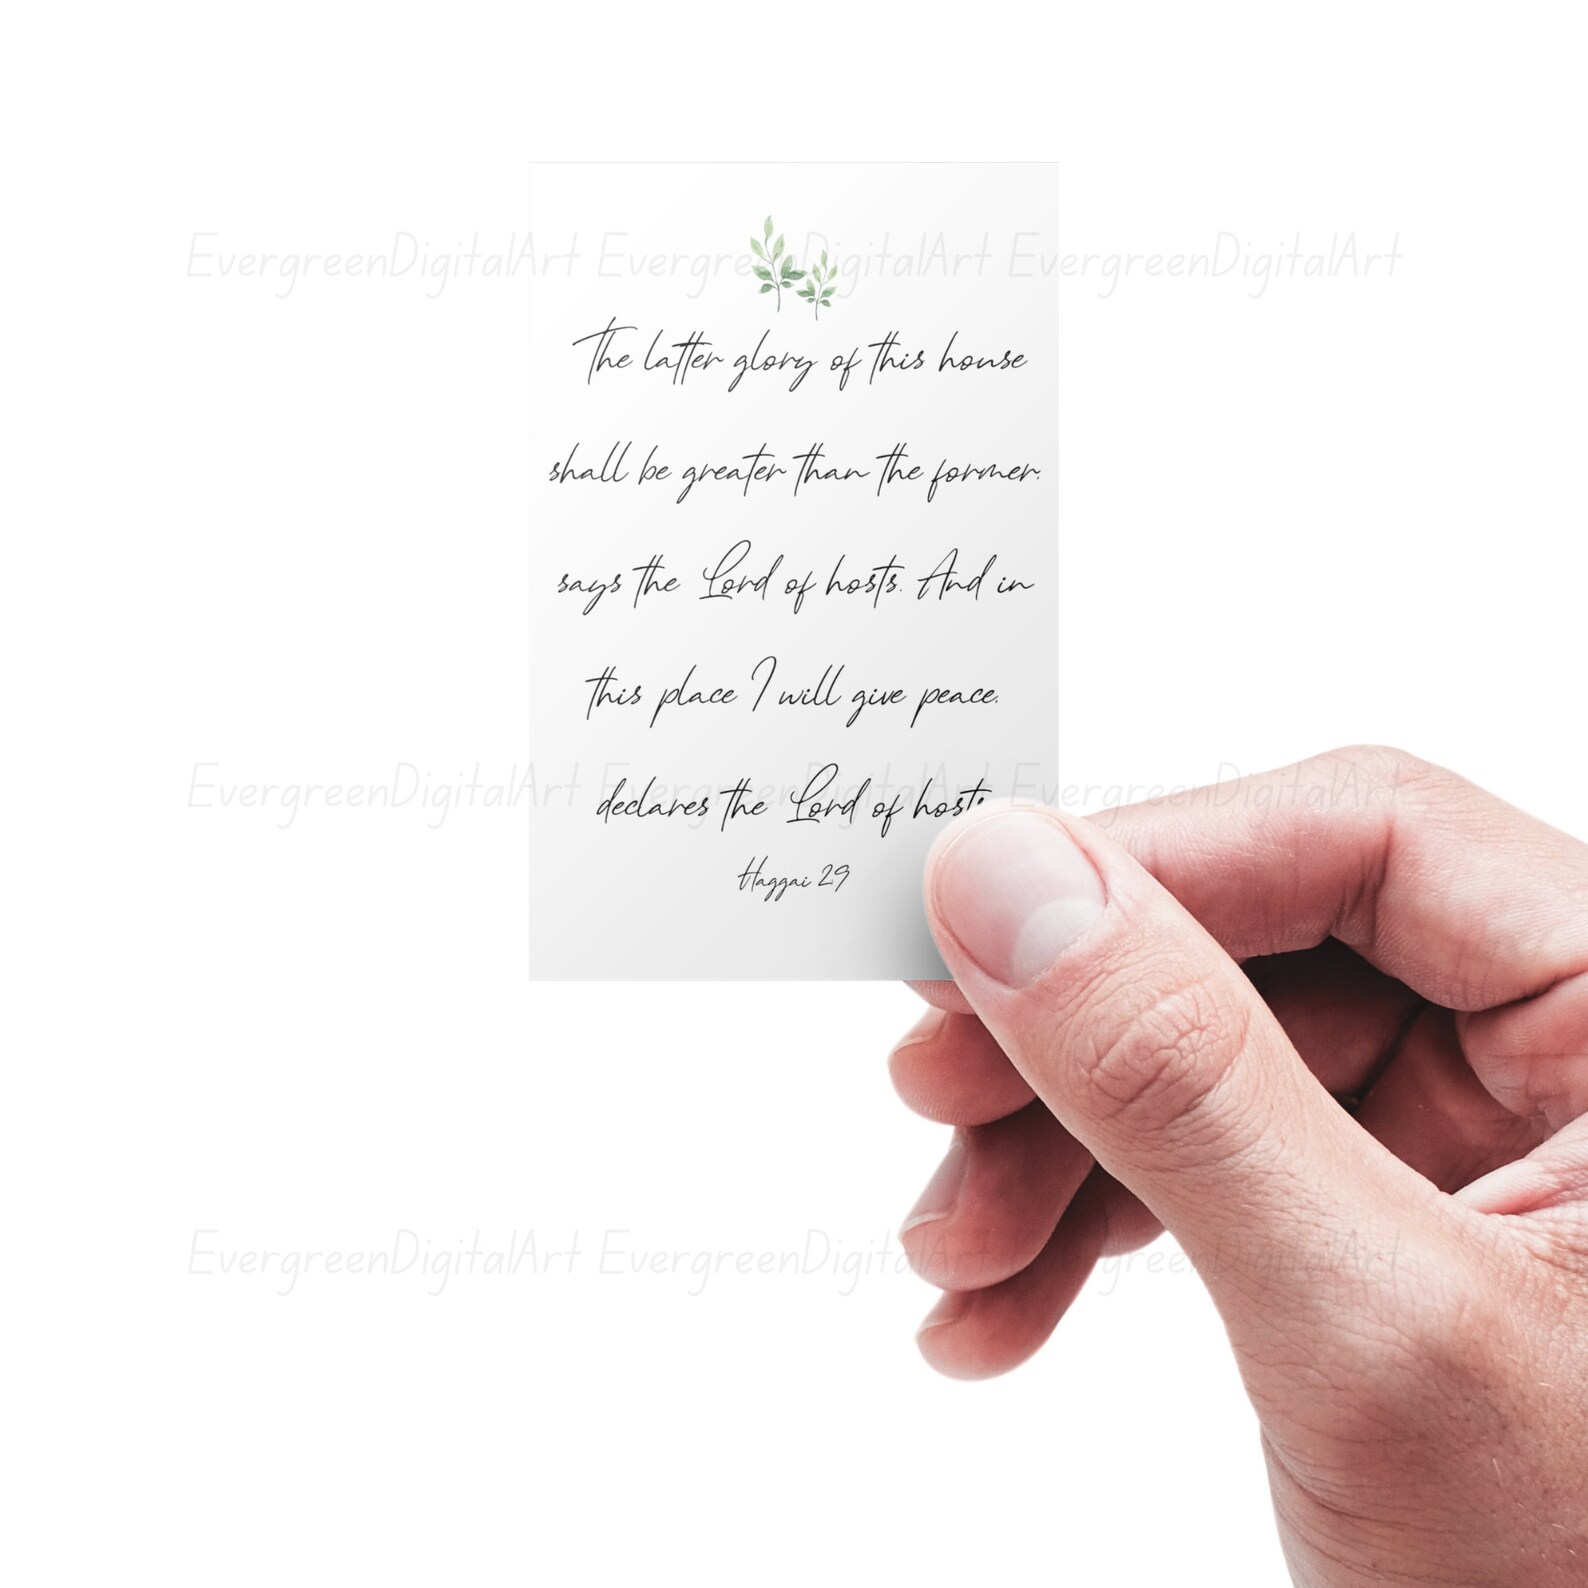 EvergreenDigitalArt EvergreenDigitalArt EvergreenDigitalArt
The latter glory of this house
shall be greater than the former,
says the Lord of hosts. And in
this place I will give peace,
declares the Lord of hosts
Haggai 29
EvergreenDigitalArt EvergreenDigitalArt EvergreenDigitalArt
EvergreenDigitalArt EvergreenDigitalArt EvergreenDigitalArt